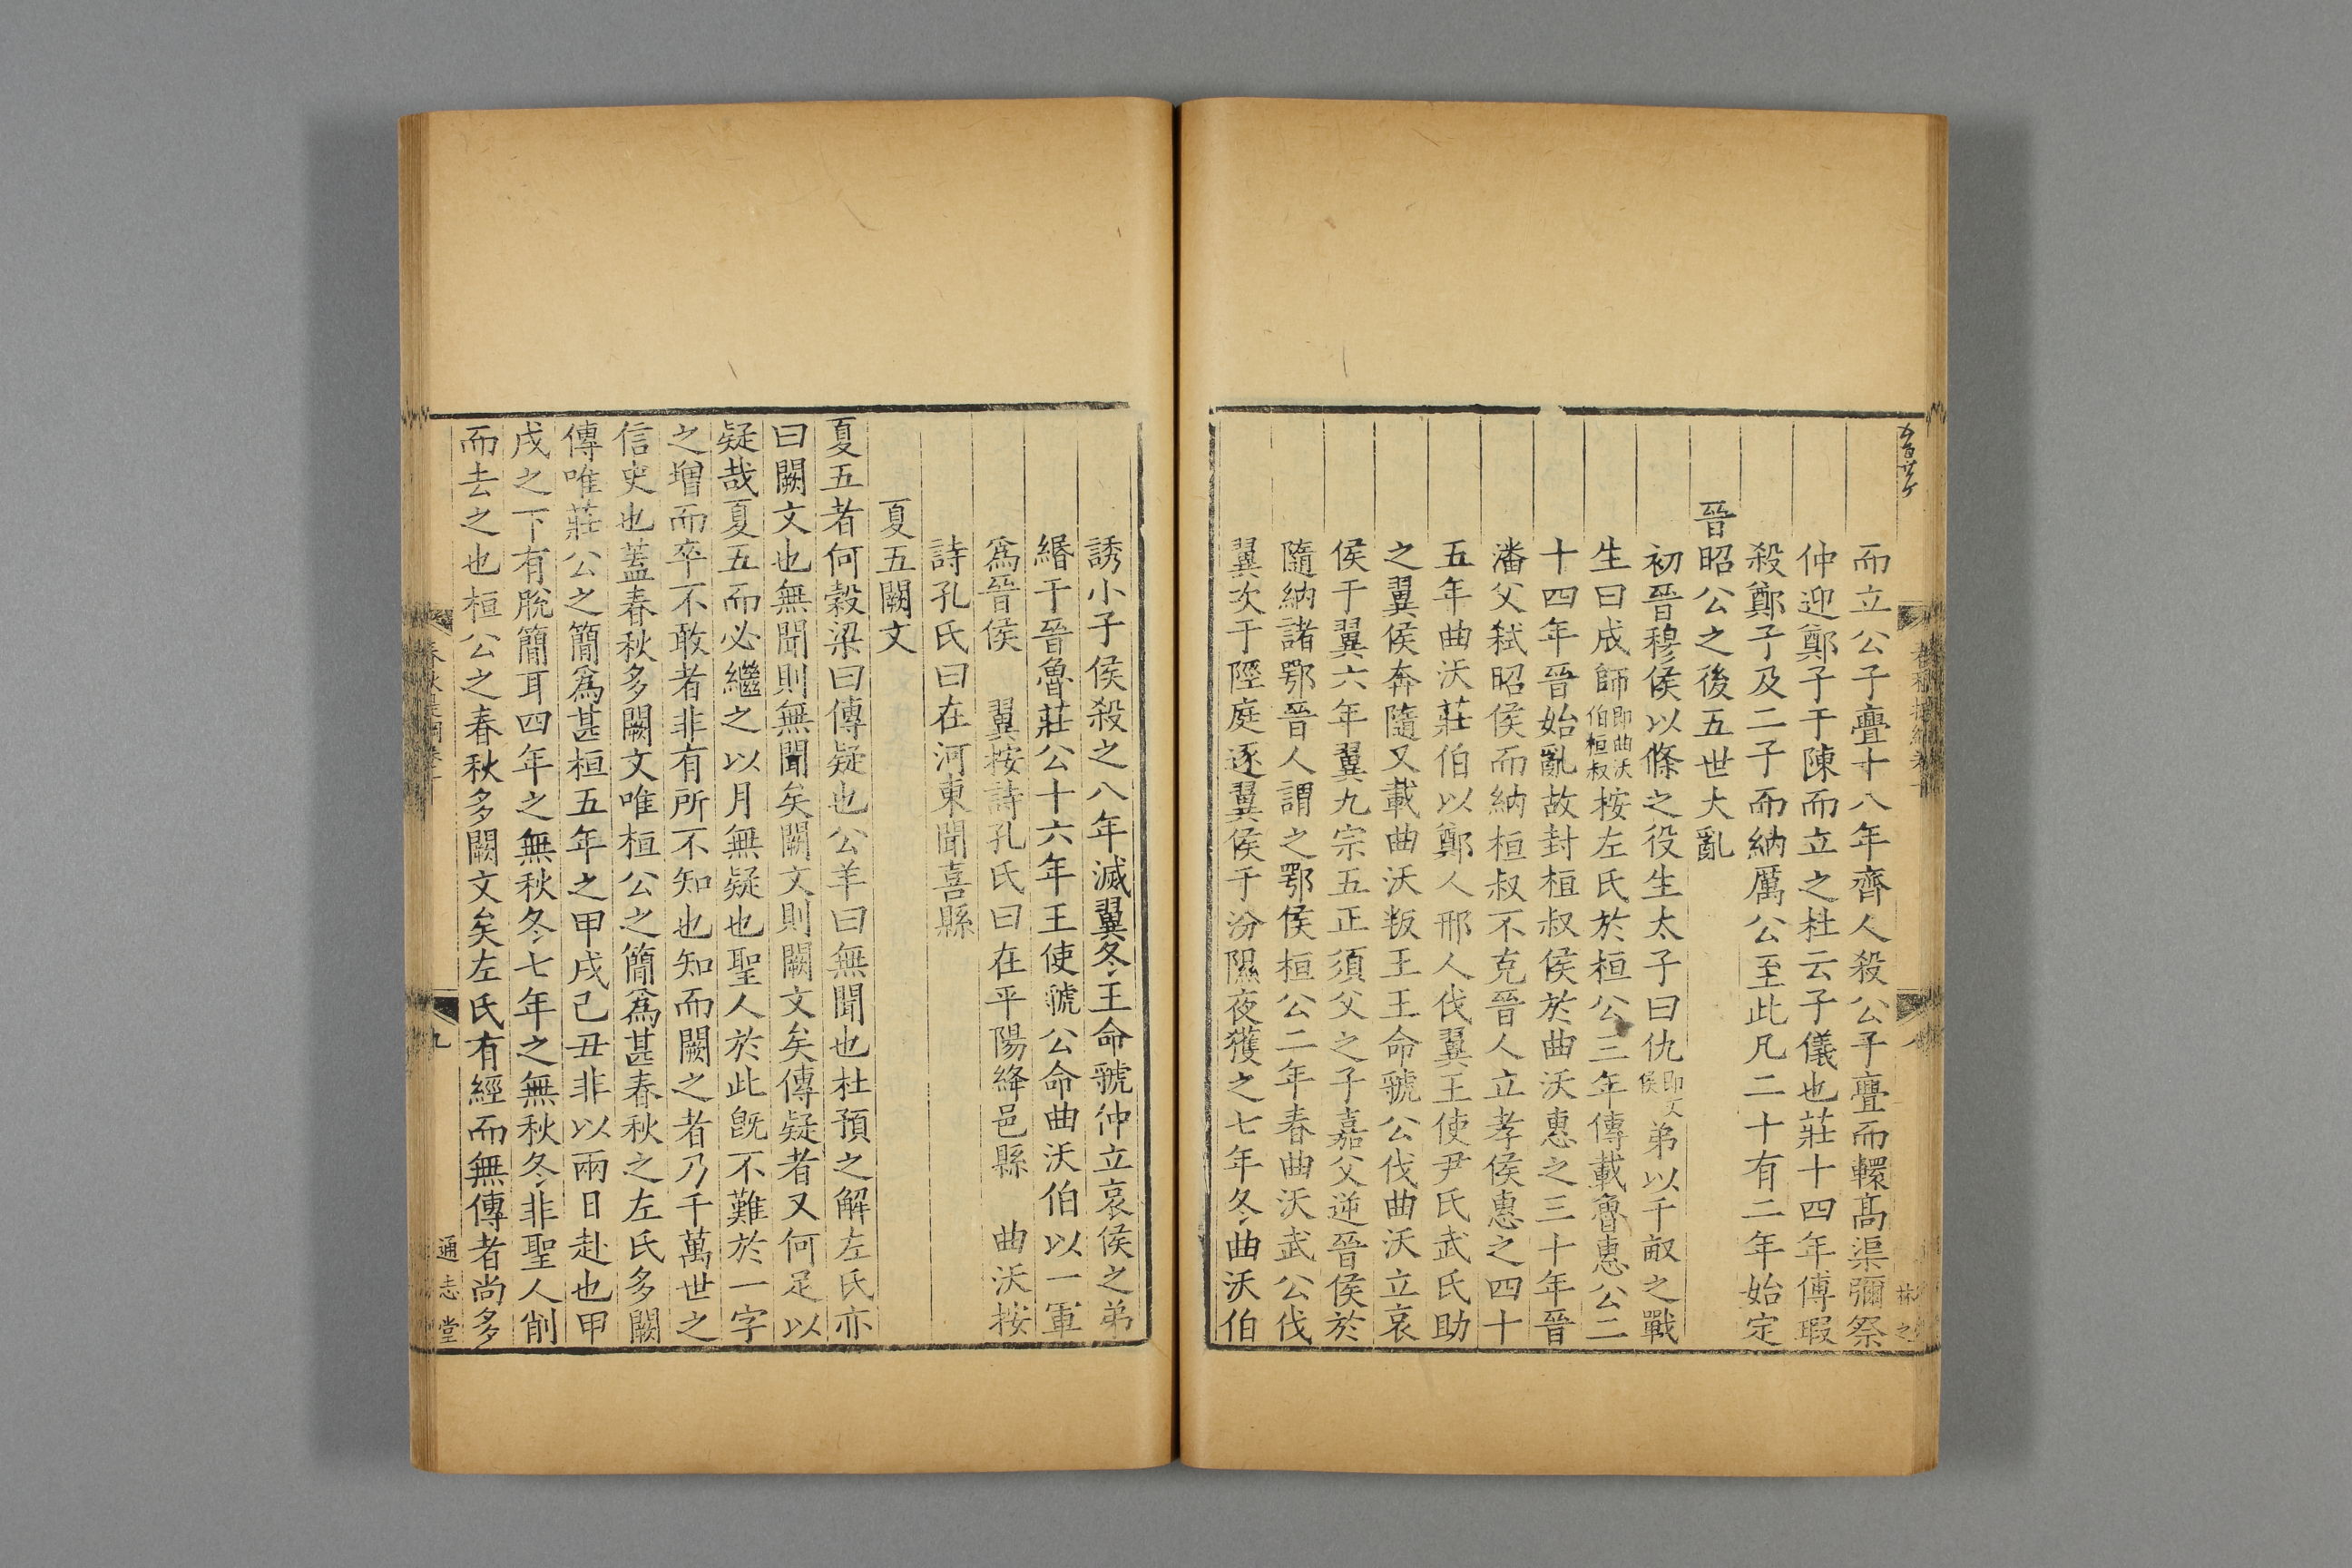 而立公子亹十八年齊人殺公子亹而轘髙渠彌祭
仲迎鄭子于陳而立之杜云子儀也莊十四年傳瑕
殺鄭子及二子而納厲公至此凡二十有二年始定
晉昭公之後五世大亂
初晉穆侯以條之役生太子曰仇即文侯弟以千畝之戰
生曰成師即曲沃伯桓叔桉左氏於桓公三年傳載魯惠公二
十四年晉始亂故封桓叔侯於曲沃惠之三十年晉
潘父弒昭侯而納桓叔不克晉人立孝侯惠之四十
五年曲沃莊伯以鄭人邢人伐翼王使尹氏武氏助
之翼侯奔隨又載曲沃叛王王命虢公伐曲沃立哀
侯于翼六年翼九宗五正須父之子嘉父逆晉侯於
隨納諸鄂晉人謂之鄂侯桓公二年春曲沃武公伐
翼次于陘庭逐翼侯于汾隰夜獲之七年冬曲沃伯
誘小子侯殺之八年滅翼冬王命虢仲立哀侯之弟
緡于晉魯莊公十六年王使虢公命曲沃伯以一軍
爲晉侯　翼桉詩孔氏曰在平陽絳邑縣　曲沃桉
詩孔氏曰在河東聞喜縣
夏五闕文
夏五者何穀梁曰傳疑也公羊曰無聞也杜預之解左氏亦
曰闕文也無聞則無聞矣闕文則闕文矣傳疑者又何足以
疑哉夏五而必繼之以月無疑也聖人於此旣不難於一字
之增而卒不敢者非有所不知也知而闕之者乃千萬世之
信史也蓋春秋多闕文唯桓公之簡爲甚春秋之左氏多闕
傳唯莊公之簡爲甚桓五年之甲戌己丑非以兩日赴也甲
戌之下有脫簡耳四年之無秋冬七年之無秋冬非聖人削
而去之也桓公之春秋多闕文矣左氏有經而無傳者尚多
九
通志堂